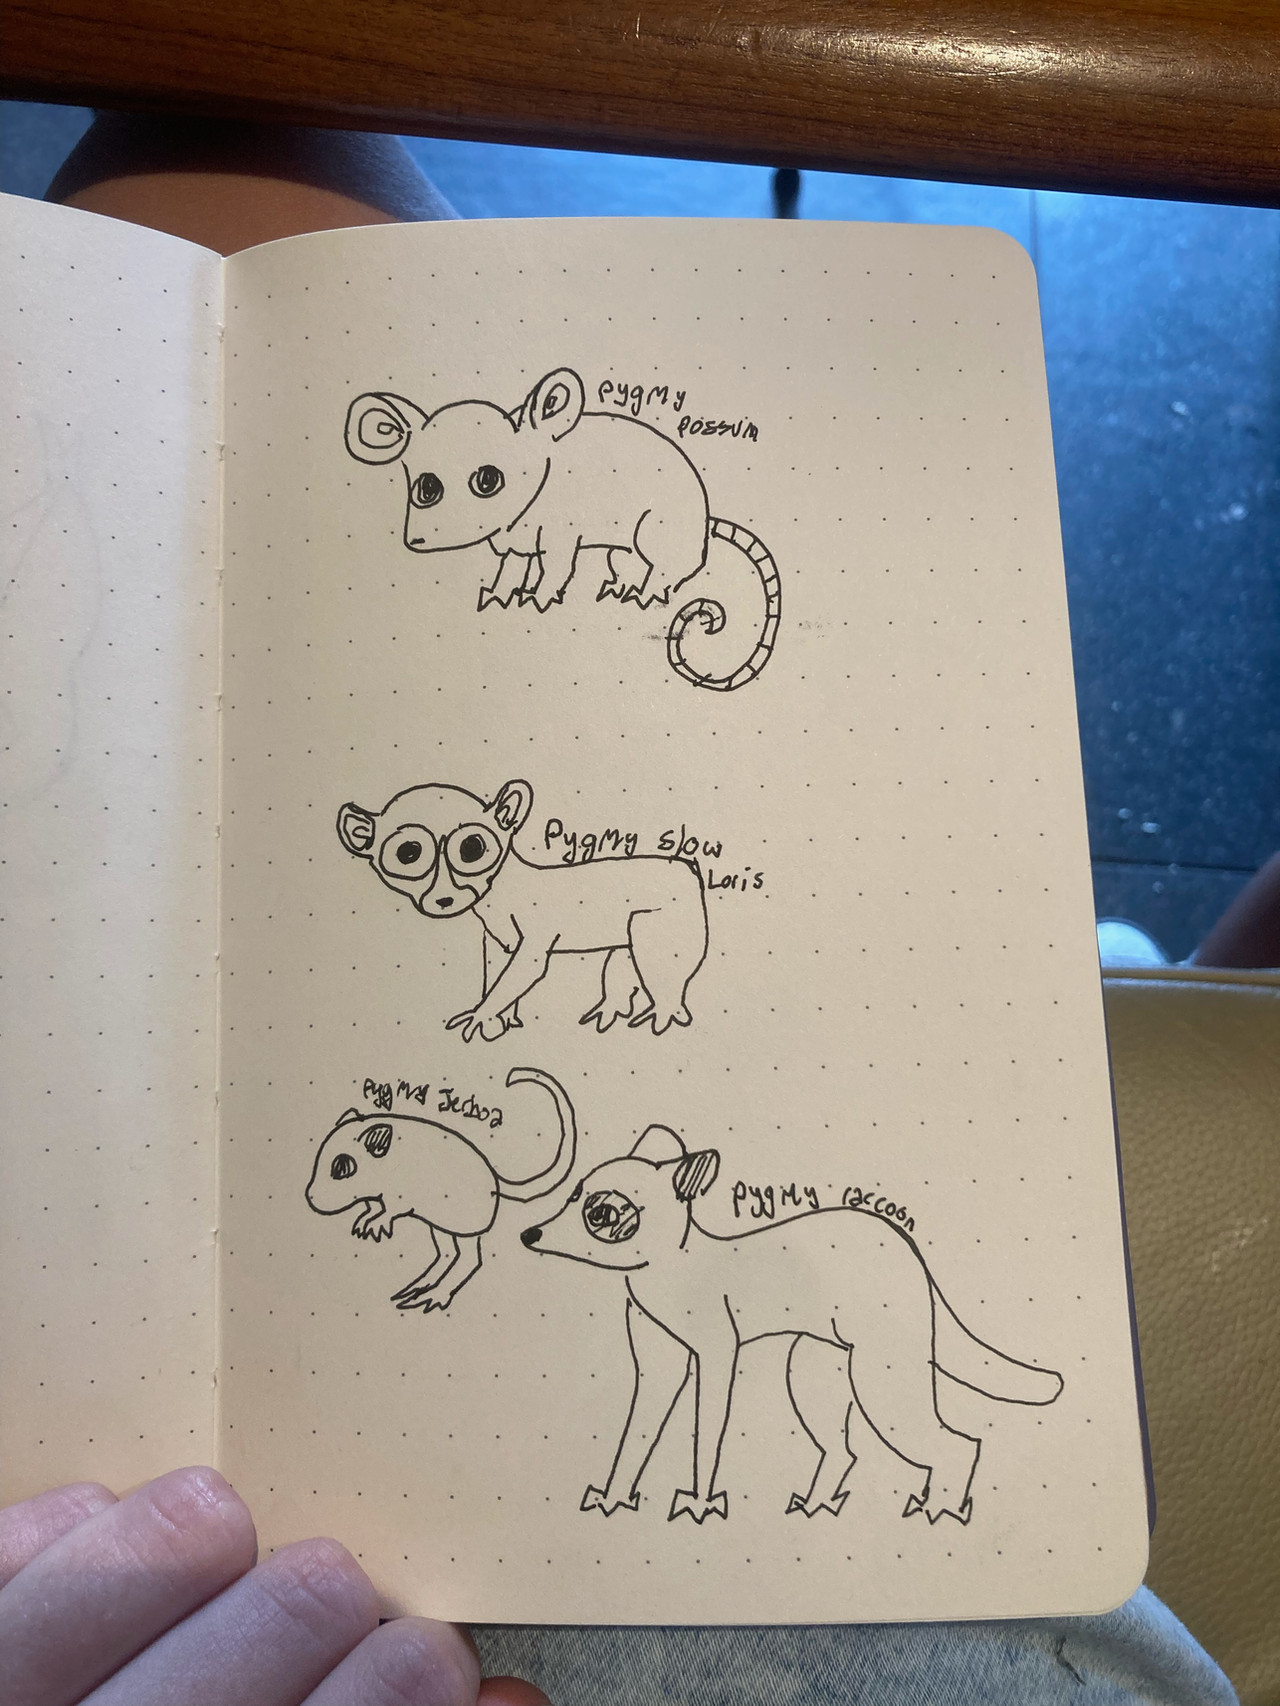 Pygmy
possum
Pygmy slow
Loris
Pygmy Jerboa
Pygmy raccoon